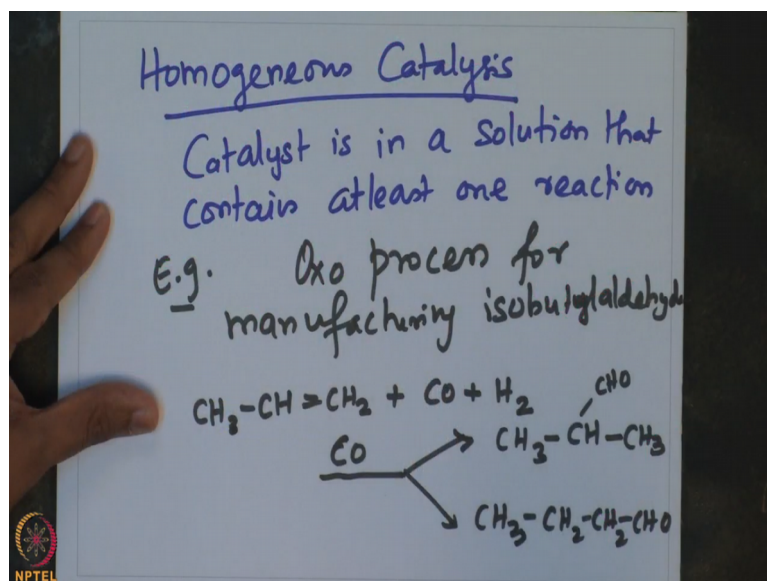 Homogeneous Catalysis
Catalyst is in a solution that
contains atleast one reaction
E.g. Oxo process for
manufacturing isobutylaldehyde
CH₃-CH=CH₂ + CO + H₂
CHO
CO
CH₃-CH-CH₃
CH₃-CH₂-CH₂-CHO
NPTEL